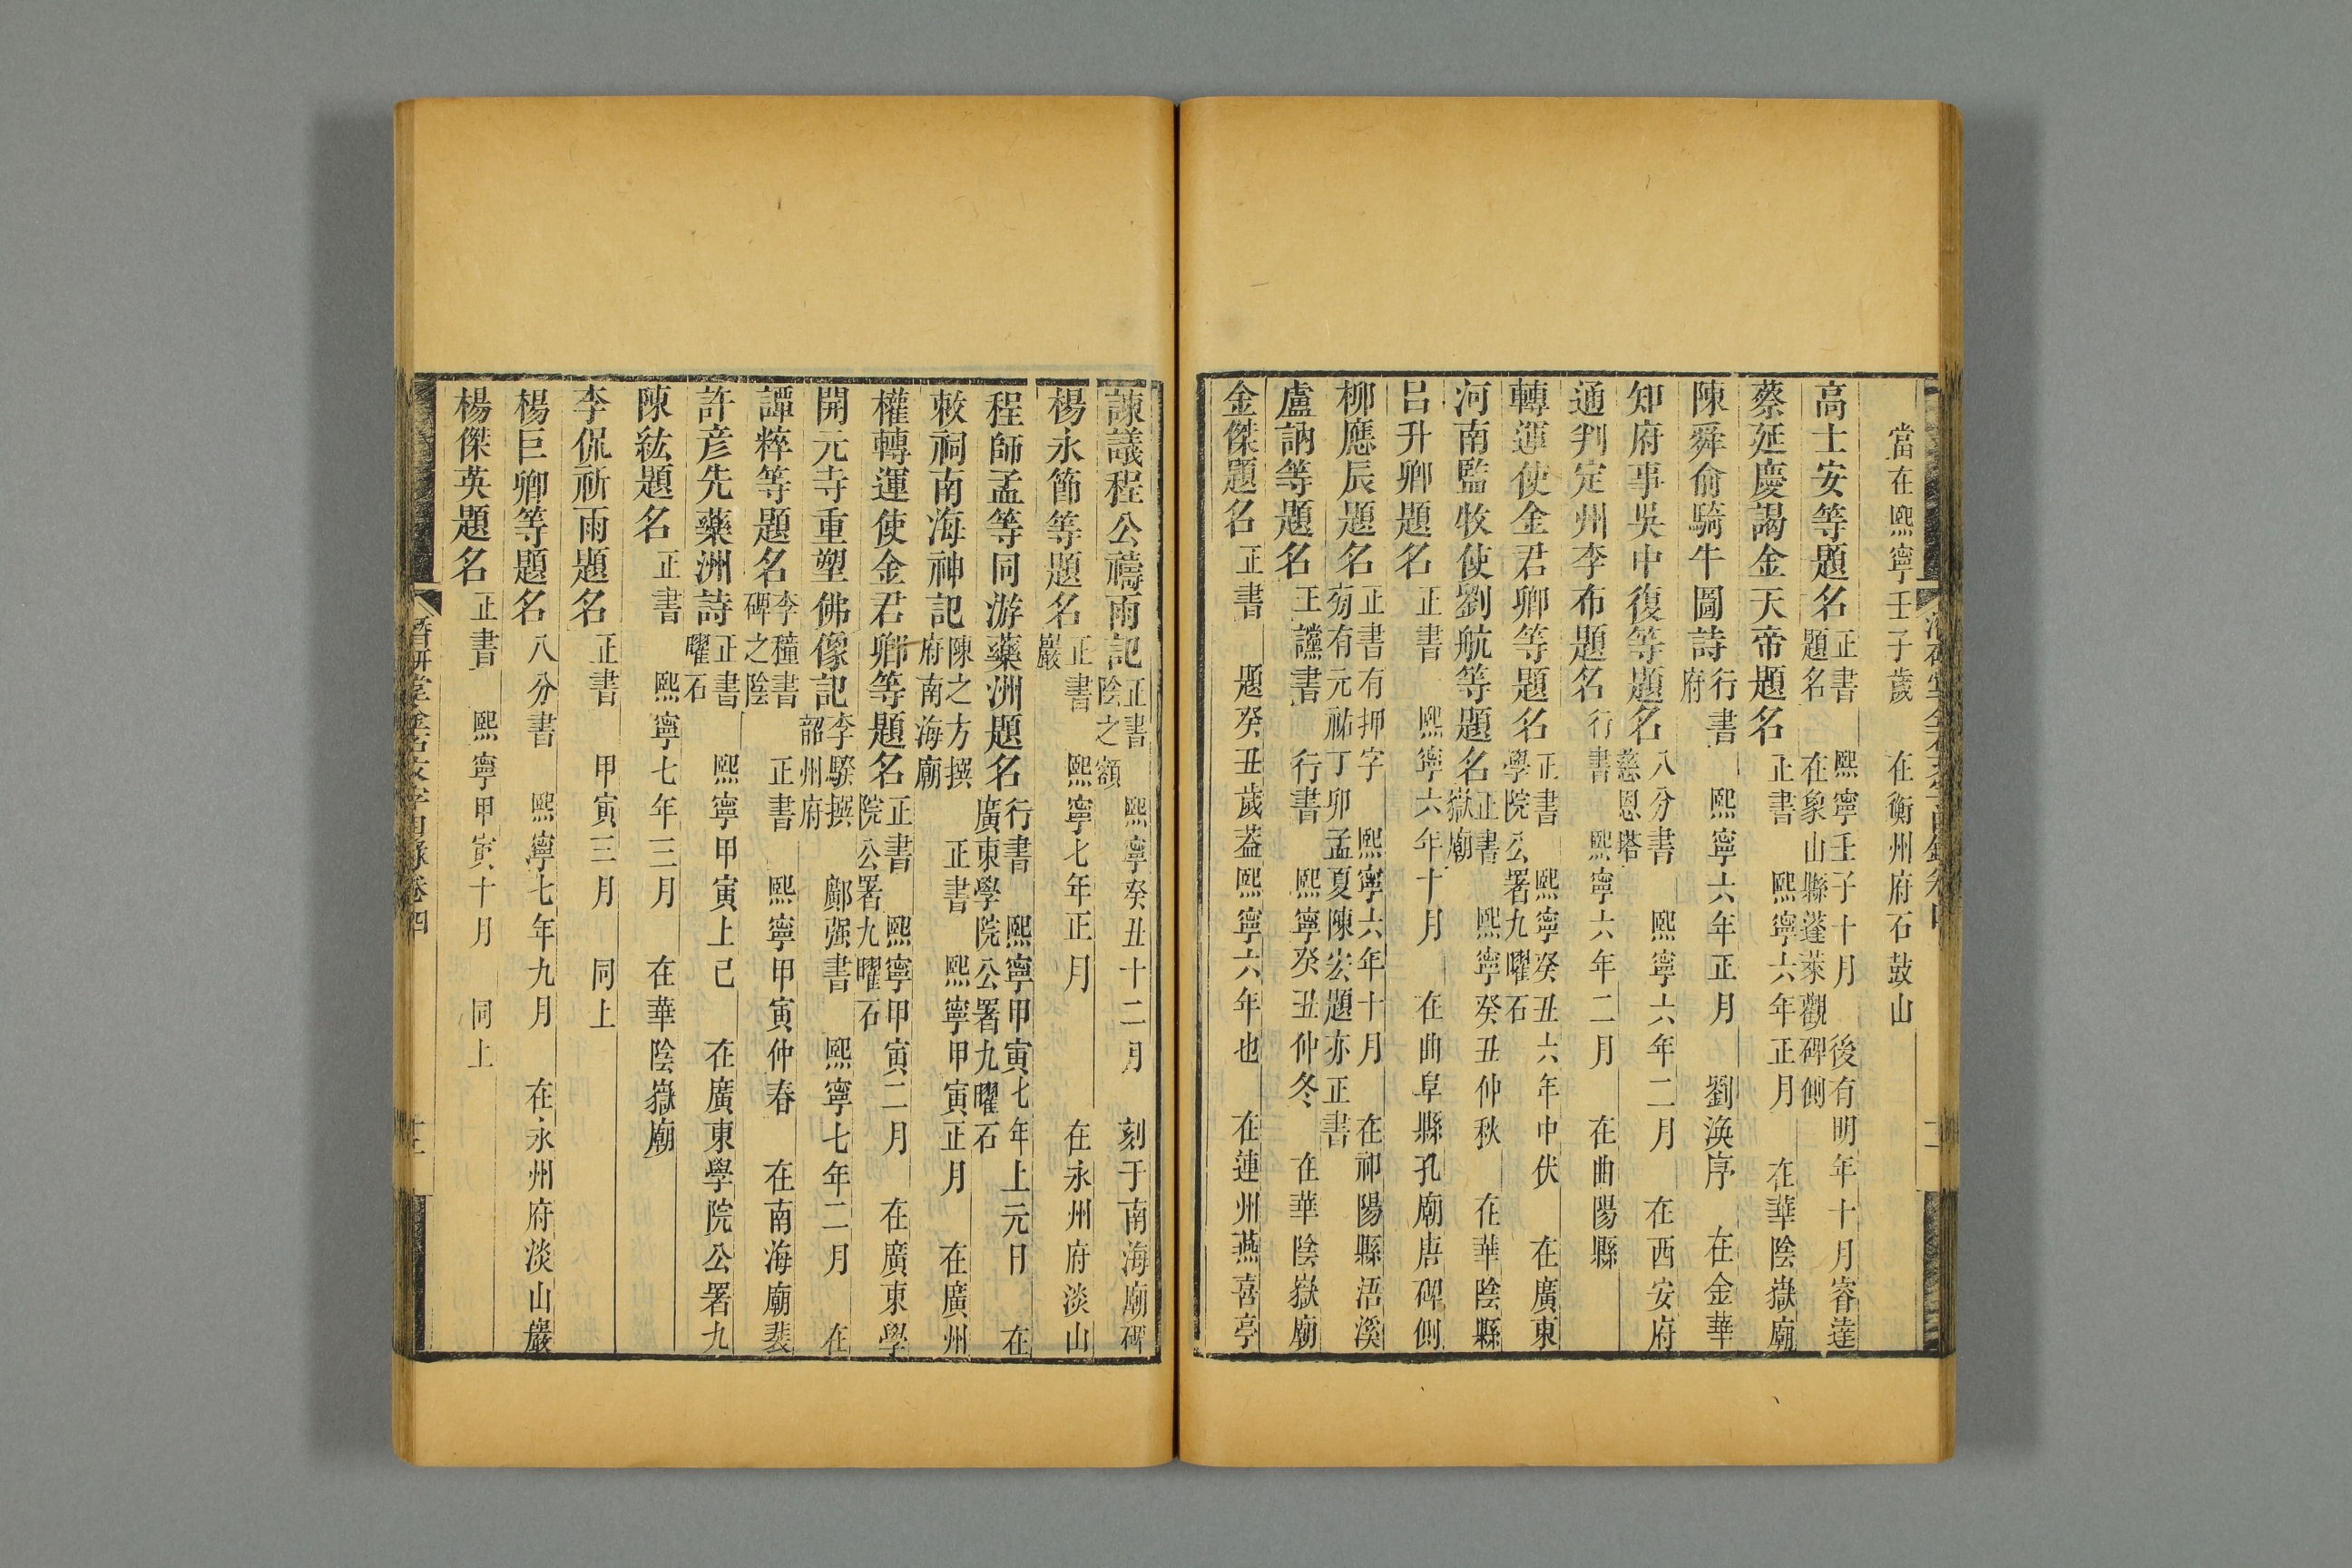 當在熙寧壬子歲　在衡州府石鼓山
高士安等題名　正書　熙寧壬子十月　後有明年十月睿達題名　在象山縣蓬萊觀碑側
蔡延慶謁金天帝題名　正書　熙寧六年正月　在華陰嶽廟
陳舜俞騎牛圖詩　行書　熙寧六年正月　劉渙序　在金華府
知府事吳中復等題名　八分書　熙寧六年二月　在西安府慈恩塔
通判定州李布題名　行書　熙寧六年二月　在曲陽縣
轉運使金君卿等題名　正書　熙寧癸丑六年中伏　在廣東學院公署九曜石
河南監牧使劉航等題名　正書　熙寧癸丑仲秋　在華陰縣嶽廟
呂升卿題名　正書　熙寧六年十月　在曲阜縣孔廟唐碑側
柳應辰題名　正書有押字　熙寧六年十月　在祁陽縣浯溪　旁有元祐丁卯孟夏陳宏題亦正書
盧訥等題名　王讜書　行書　熙寧癸丑仲冬　在華陰嶽廟
金傑題名　正書　題癸丑歲蓋熙寧六年也　在連州燕喜亭
諫議程公禱雨記　正書　熙寧癸丑十二月　刻于南海廟碑陰之額
楊永節等題名　正書　熙寧七年正月　在永州府淡山巖
程師孟等同游藥洲題名　行書　熙寧甲寅七年上元日　在廣東學院公署九曜石
敕祠南海神記　陳之方撰　正書　熙寧甲寅正月　在廣州府南海廟
權轉運使金君卿等題名　正書　熙寧甲寅二月　在廣東學院公署九曜石
開元寺重塑佛像記　李騤撰　鄺强書　熙寧七年二月　在韶州府
譚粹等題名　李種書　正書　熙寧甲寅仲春　在南海廟裴碑之陰
許彥先藥洲詩　正書　熙寧甲寅上己　在廣東學院公署九曜石
陳紘題名　正書　熙寧七年三月　在華陰嶽廟
李侃祈雨題名　正書　甲寅三月　同上
楊巨卿等題名　八分書　熙寧七年九月　在永州府淡山巖
楊傑英題名　正書　熙寧甲寅十月　同上
潛研堂金石文字目錄卷四